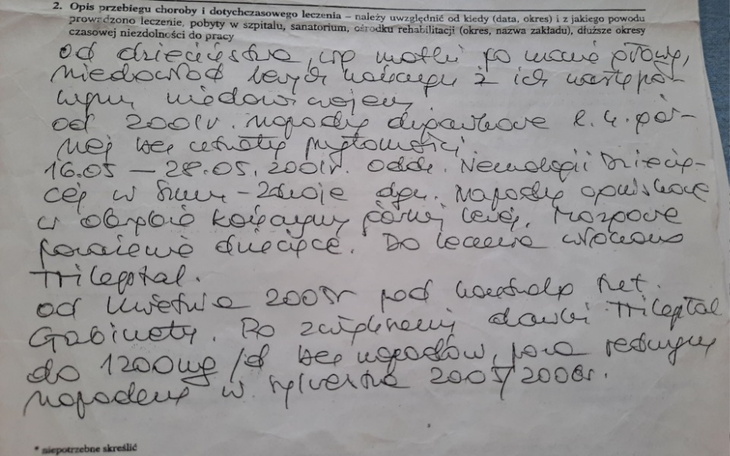 2. Opis przebiegu choroby i dotychczasowego leczenia – należy uwzględnić od kiedy (data, okres) i z jakiego powodu
prowadzono leczenie, pobyty w szpitalu, sanatorium, ośrodku rehabilitacji (okres, nazwa zakładu), dłuższe okresy
czasowej niezdolności do pracy
od dzieciństwa, wg matki po urazie głowy,
niedowład lewych kończyn z ich następo-
wym niedorozwojem
od 2001r. napady k. g. gór-
nej bez utraty przytomności
16.05 – 28.05.2001r. Oddz. Neurologii Dziecię-
cej w – Zdroje napady ogniskowe
w obrębie kończyny górnej lewej. Mózgowe
porażenie dziecięce. Do leczenia włączono
Trileptal.
od kwietnia 2005r pod kontrolą
Gabinetu. Po zwiększeniu dawki Trileptal
do 1200mg/d bez napadów, poza
napadem w sylwestra 2005/2006r.
* niepotrzebne skreślić